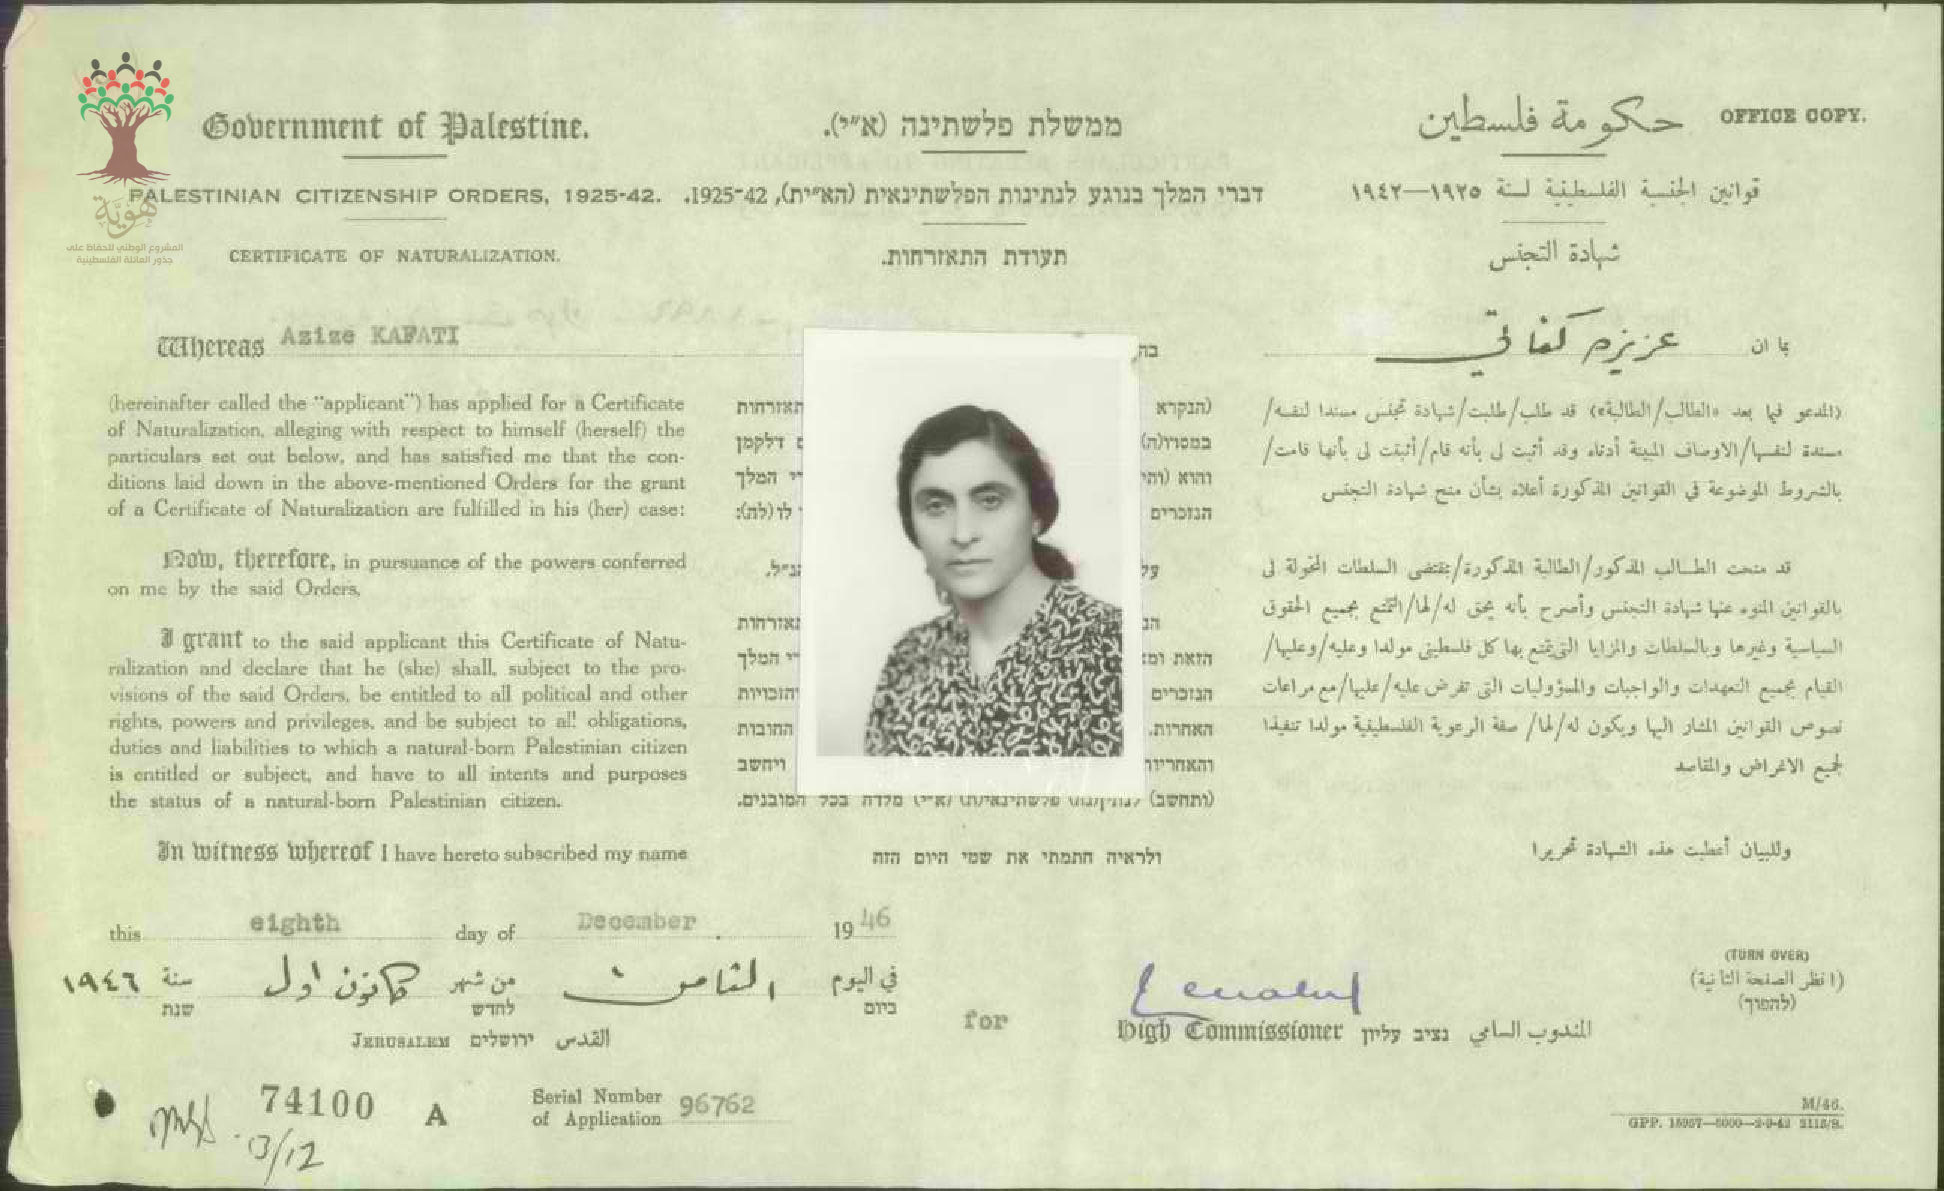 Government of Palestine.
ממשלת פלשתינה (א״י).
حكومة فلسطين
OFFICE COPY.
PALESTINIAN CITIZENSHIP ORDERS, 1925-42.
דברי המלך בנוגע לנתינות הפלשתינאית (הא״ית), 1925-42.
قوانين الجنسية الفلسطينية لسنة ١٩٢٥—١٩٤٢
هوية
المشروع الوطني للحفاظ على
جذور العائلة الفلسطينية
CERTIFICATE OF NATURALIZATION.
תעודת התאזרחות.
شهادة التجنس
Whereas Azize KAFATI
بما ان عزيزه كفاتي
(hereinafter called the "applicant") has applied for a Certificate
of Naturalization, alleging with respect to himself (herself) the
particulars set out below, and has satisfied me that the con-
ditions laid down in the above-mentioned Orders for the grant
of a Certificate of Naturalization are fulfilled in his (her) case:
Now, therefore, in pursuance of the powers conferred
on me by the said Orders,
I grant to the said applicant this Certificate of Natu-
ralization and declare that he (she) shall, subject to the pro-
visions of the said Orders, be entitled to all political and other
rights, powers and privileges, and be subject to all obligations,
duties and liabilities to which a natural-born Palestinian citizen
is entitled or subject, and have to all intents and purposes
the status of a natural-born Palestinian citizen.
In witness whereof I have hereto subscribed my name
(הנקרא
תאזרחות
דלקמן
והוא
המלך
הנזכרים
לו (לה):
תאזרחות
הזאת
המלך
הנזכרים
האחרות.
החובות
ויחשב
(ותחשב)
מלדה בכל המובנים.
ולראיה חתמתי את שמי היום הזה
(المدعو فيما بعد «الطالب/الطالبة») قد طلب/طلبت/شهادة تجنس مسندا لنفسه/
مسندة لنفسها/الاوصاف المبينة أدناه وقد أثبت لى بأنه قام/أثبتت لى بأنها قامت/
بالشروط الموضوعة في القوانين المذكورة أعلاه بشأن منح شهادة التجنس
قد منحت الطالب المذكور/الطالبة المذكورة/بمقتضى السلطات المخولة لى
بالقوانين المنوه عنها شهادة التجنس وأصرح بأنه يحق له/لها/التمتع بجميع الحقوق
السياسية وغيرها وبالسلطات والمزايا التى يتمتع بها كل فلسطينى مولدا وعليه/وعليها/
القيام بجميع التعهدات والواجبات والمسؤوليات التى تفرض عليه/عليها/مع مراعات
نصوص القوانين المشار اليها ويكون له/لها/ صفة الرعوية الفلسطينية مولدا تنفيذا
لجميع الاغراض والمقاصد
وللبيان أعطيت هذه الشهادة تحريرا
this eighth day of December 1946
في اليوم الثامن من شهر كانون اول سنة ١٩٤٦
ביום לחדש שנת
JERUSALEM ירושלים القدس
for
High Commissioner נציב עליון المندوب السامي
(TURN OVER)
(انظر الصفحة الثانية)
(להפוך)
74100 A
Serial Number
of Application 96762
13/12
M/46.